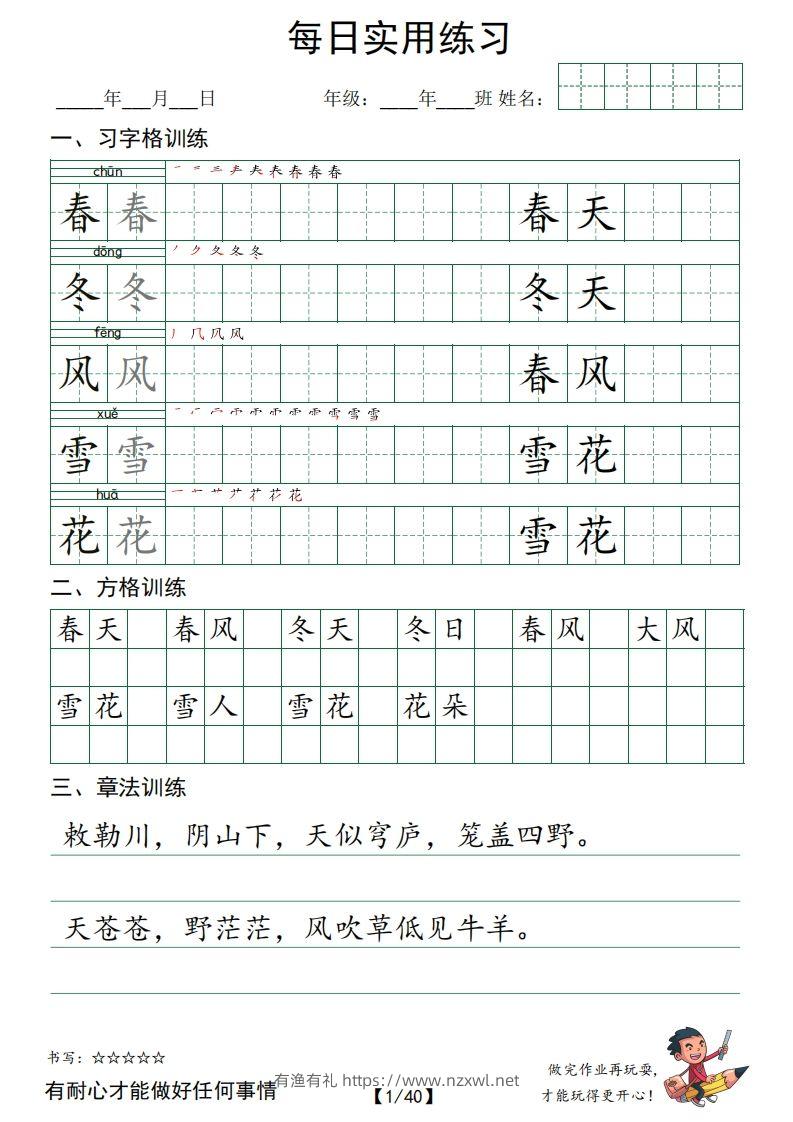 每日实用练习
_____年___月___日 年级：____年____班 姓名：
一、习字格训练
chūn
春 春 春 天
dōng
冬 冬 冬 天
fēng
风 风 春 风
xuě
雪 雪 雪 花
huā
花 花 雪 花
二、方格训练
春天 春风 冬天 冬日 春风 大风
雪花 雪人 雪花 花朵
三、章法训练
敕勒川，阴山下，天似穹庐，笼盖四野。
天苍苍，野茫茫，风吹草低见牛羊。
书写：☆☆☆☆☆
有耐心才能做好任何事情
有渔有礼 https://www.nzxwl.net
【1/40】
做完作业再玩耍，
才能玩得更开心！